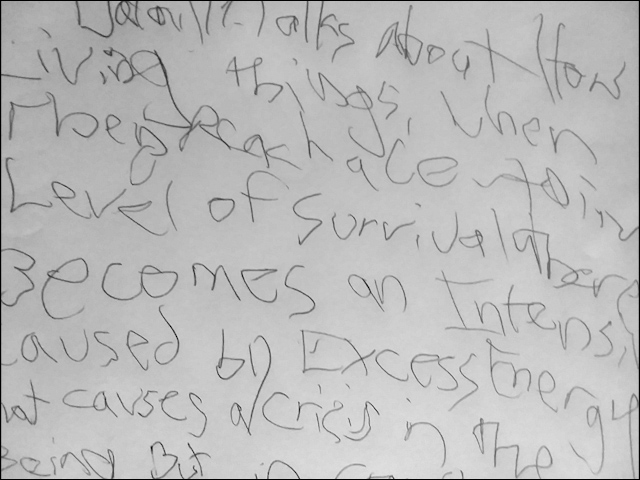 Talks about How
Living things, when
They Reach a Certain
Level of Survival there
Becomes an Intensi
caused by Excess Energy
hat causes a crisis in the
Being But in